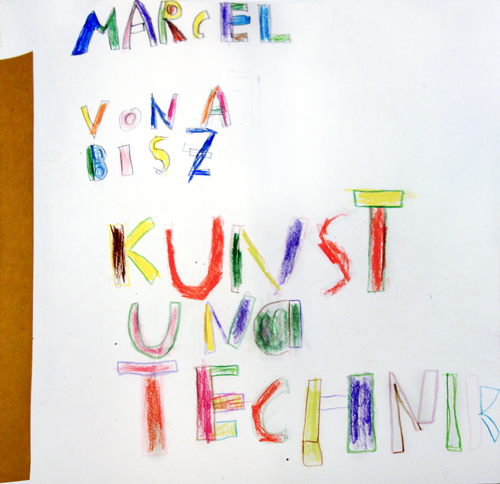 MARCEL
VON A
BIS Z
KUNST
UND
TECHNIK